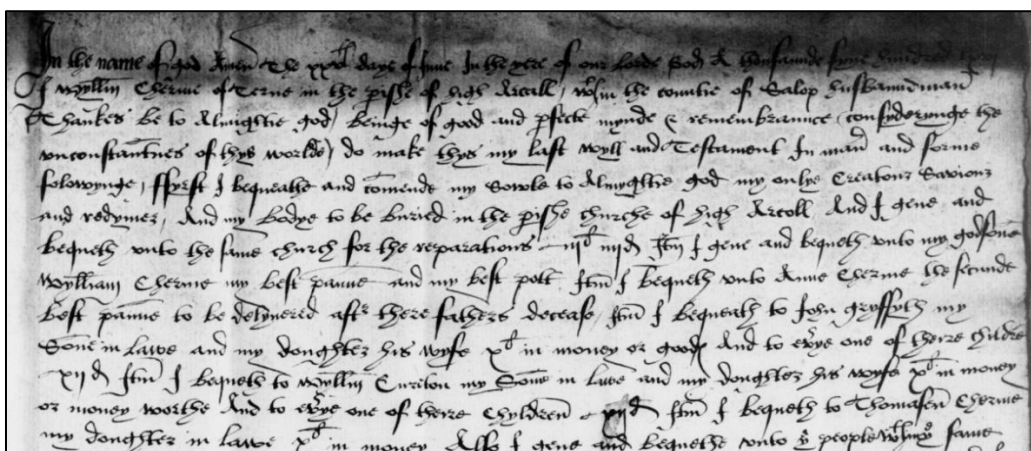 In the name of god Amen The xxxth daye of June In the yere of our lorde God A thousande fyve hundred
I Wyllm Cherme of Terne in the pishe of high Arcall, wthin the countie of Salop husbandman
Thankes be to Almightie god, beinge of good and pfecte mynde & remembrannce consyderynge the
unconstantnes of thys worlde, do make thys my last wyll and Testament In man and forme
folowynge, ffyrst I bequeathe and comende my Sowle to Almyghtie god my onlye Creatour Saviour
and redymer, And my bodye to be buried in the pishe churche of high Arcoll, And I geve and
bequeth unto the same church for the reparations iijs iiijd Itm I geve and bequeth unto my godsone
Wylliam Cherme my best panne and my best pott Itm I bequeth unto Anne Cherme the secunde
best panne to be delyvered aftr there fathers decease, Itm I bequeath to John gryffyth my
Sone in lawe and my doughter his wyfe xs in money or good And to evye one of theire childre
xijd Itm I bequeth to Wyllm Curiton my Sone in lawe and my doughter his wyfe xs in money
or money worthe And to evye one of theire Chyldren xijd Itm I bequeth to Thomasen Cherme
my doughter in lawe xs in money Also I geve and bequethe unto ye people same